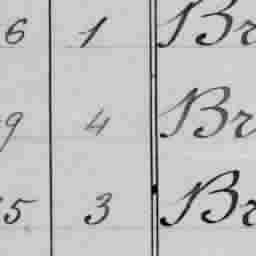 6 1 Br
9 4 Br
5 3 Br